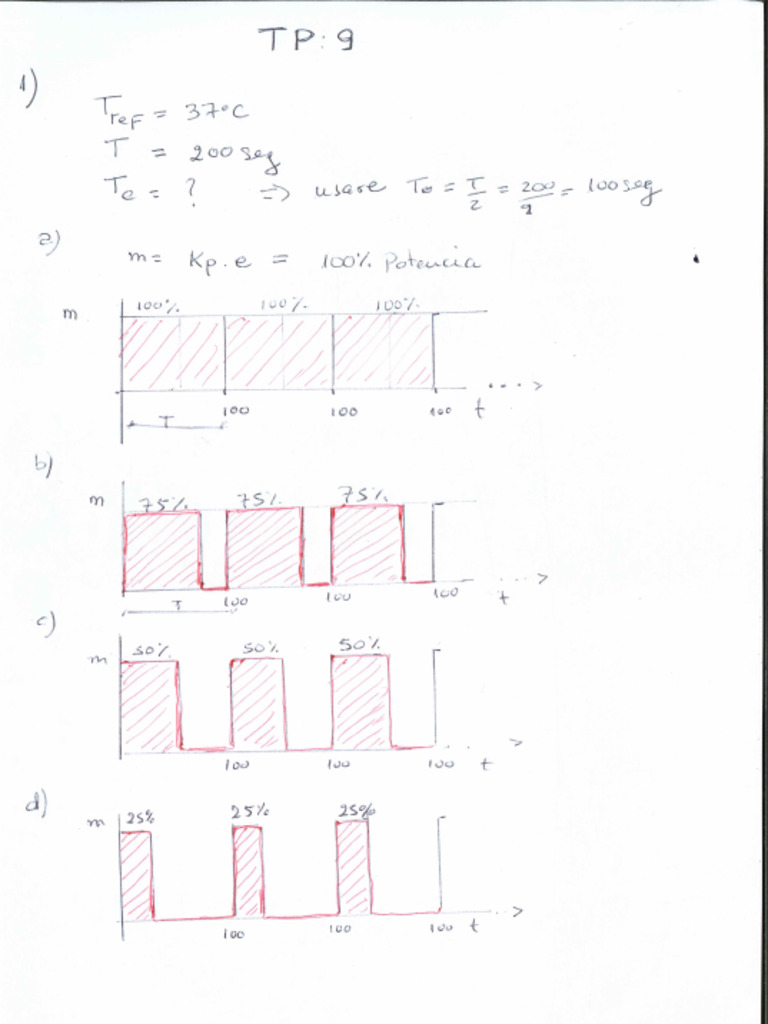 TP: 9
1)
Tref = 37°C
T = 200 seg
Tc = ? => usare Tc = T/2 = 200/2 = 100 seg
a)
m = Kp.e = 100% Potencia
100% 100% 100%
m
100 100 100 t
T
b)
75% 75% 75%
m
100 100 100 t
T
c)
50% 50% 50%
m
100 100 100 t
d)
25% 25% 25%
m
100 100 100 t